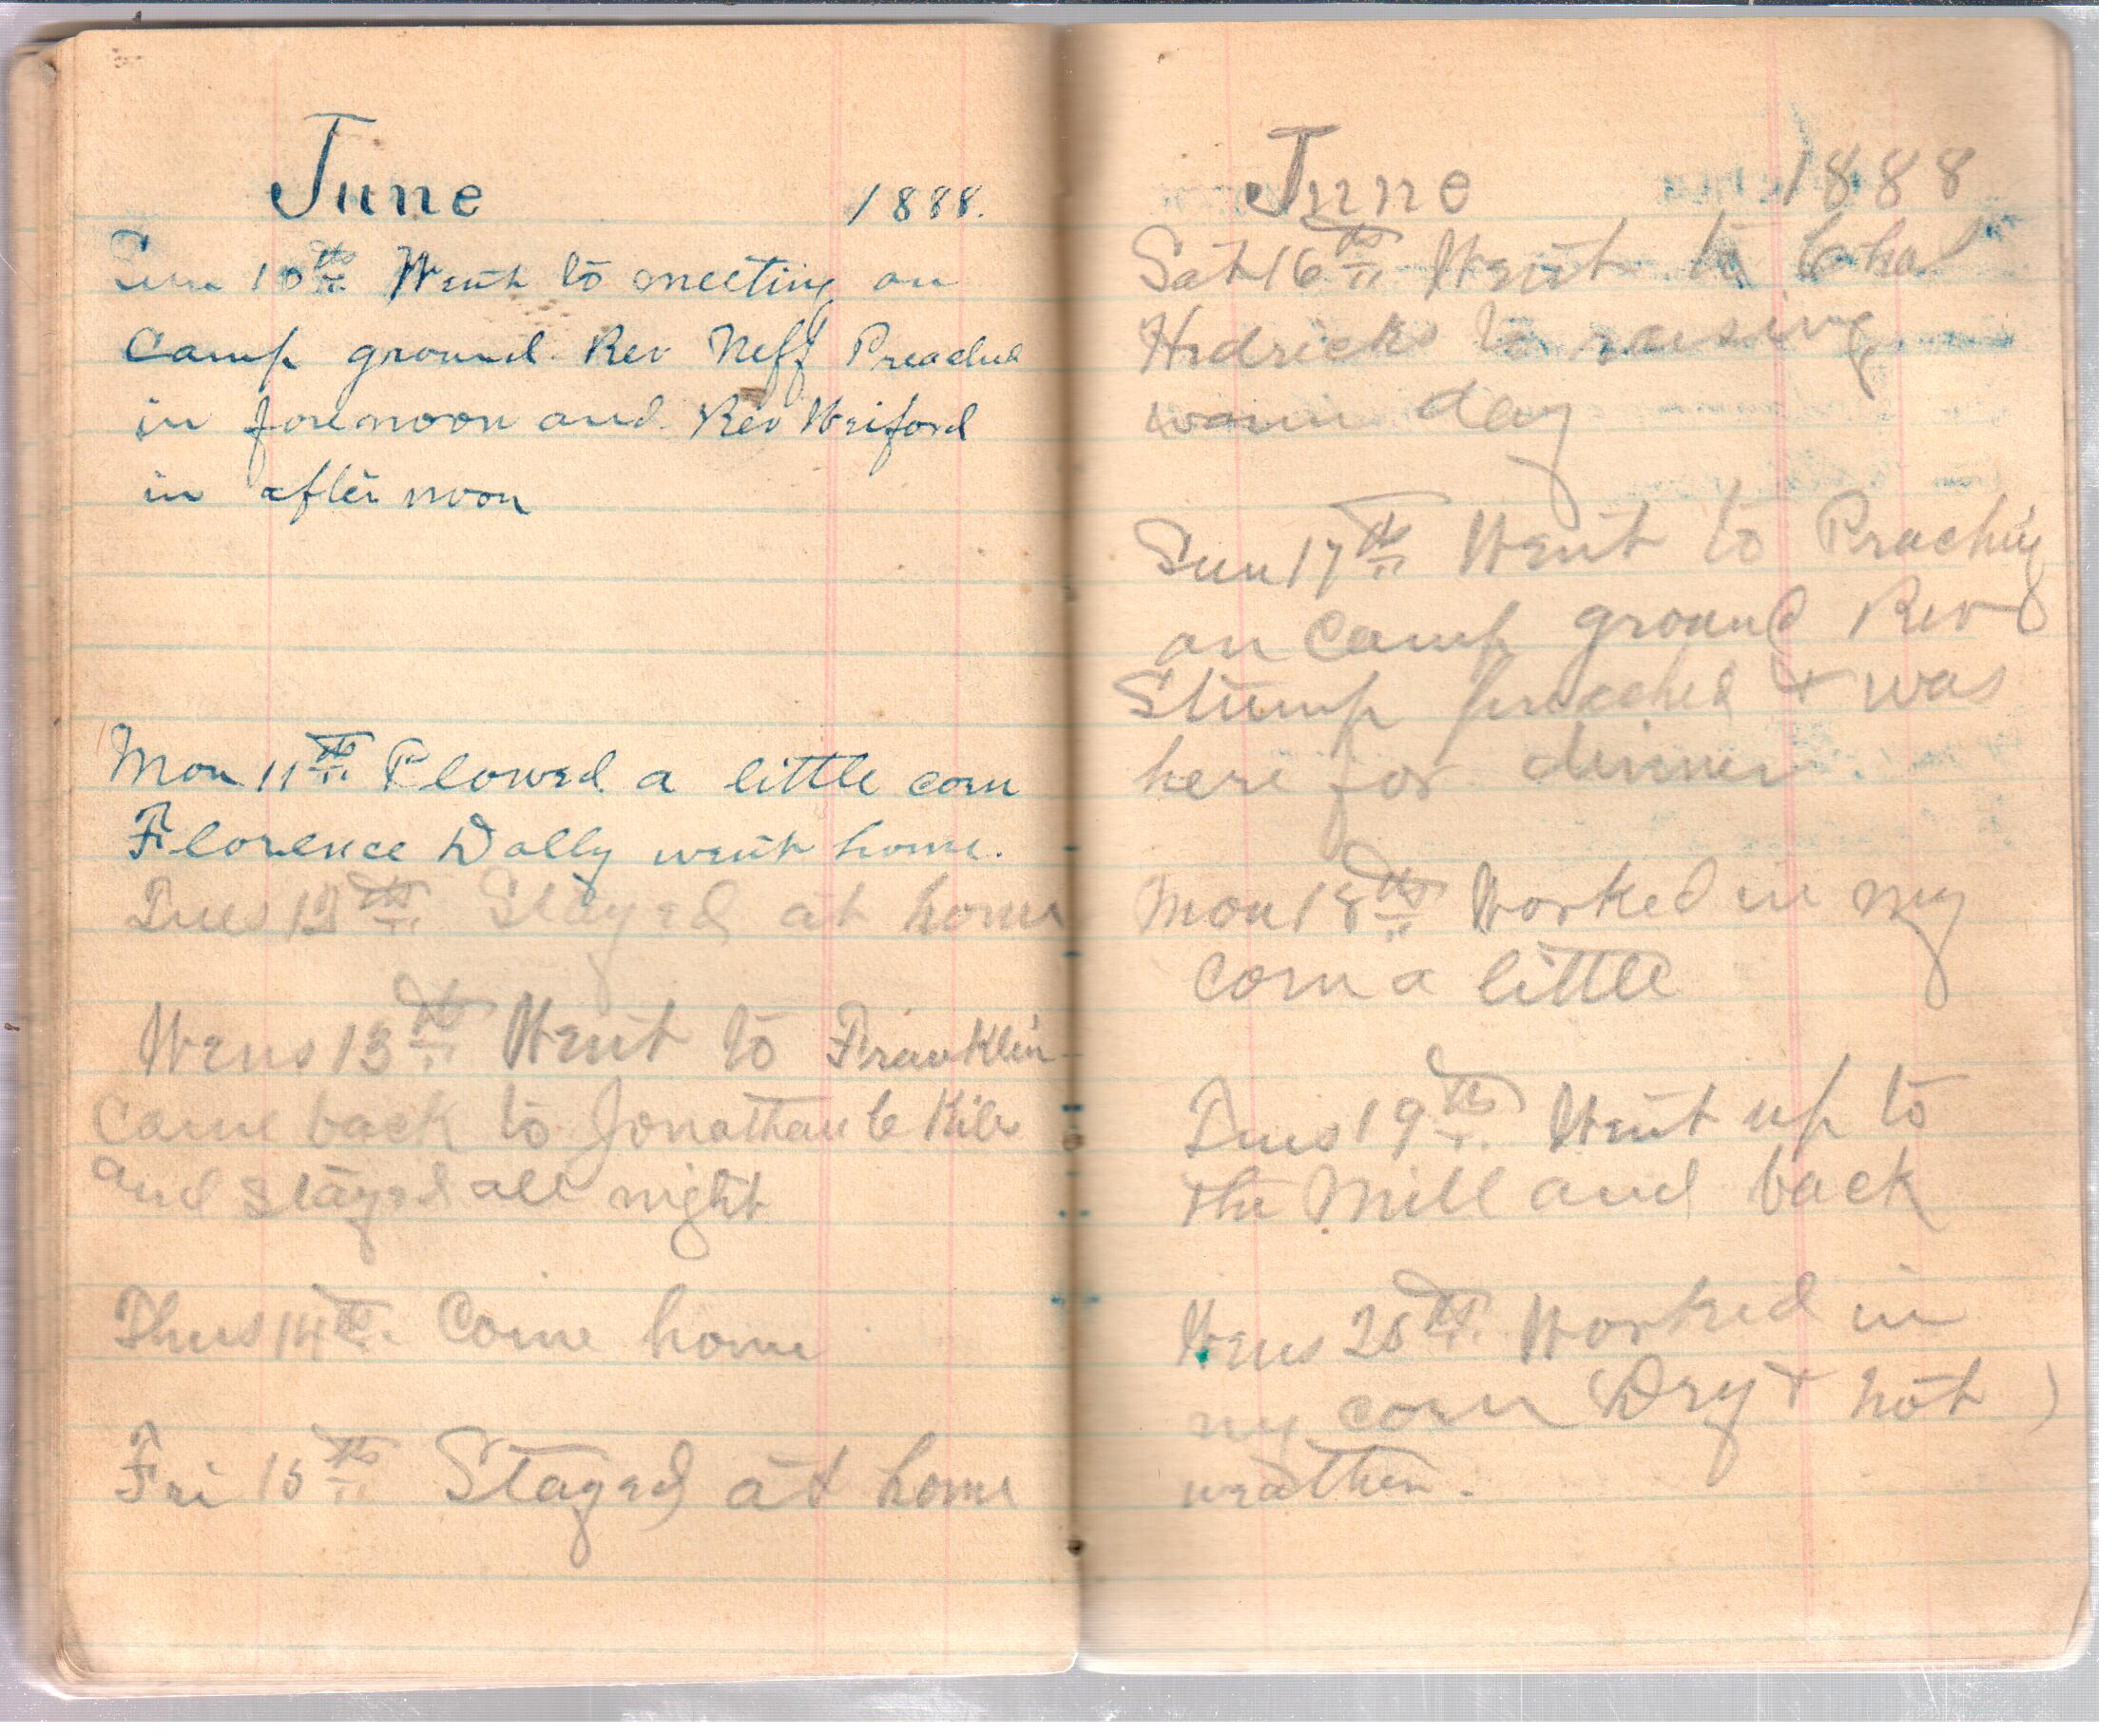 June 1888.
Sun 10th Went to meeting on
Camp ground. Rev Neff Preached
in forenoon and Rev Wriford
in after noon
Mon 11th Plowed a little corn
Florence Dolly went home.
Tues 12th Stayed at home
Wens 13th Went to Franklin
Came back to Jonathan C Hils
and stayed all night
Thus 14th Come home
Fri 15th Stayed at home
June 1888
Sat 16th Went to
Hedricks to raising
warm day
Sun 17th Went to Preaching
on Camp ground Rev
Stump preached & was
here for dinner
Mon 18th Worked in my
corn a little
Tues 19th Went up to
the Mill and back
Wens 20th Worked in
my corn (Dry & hot)
weather.